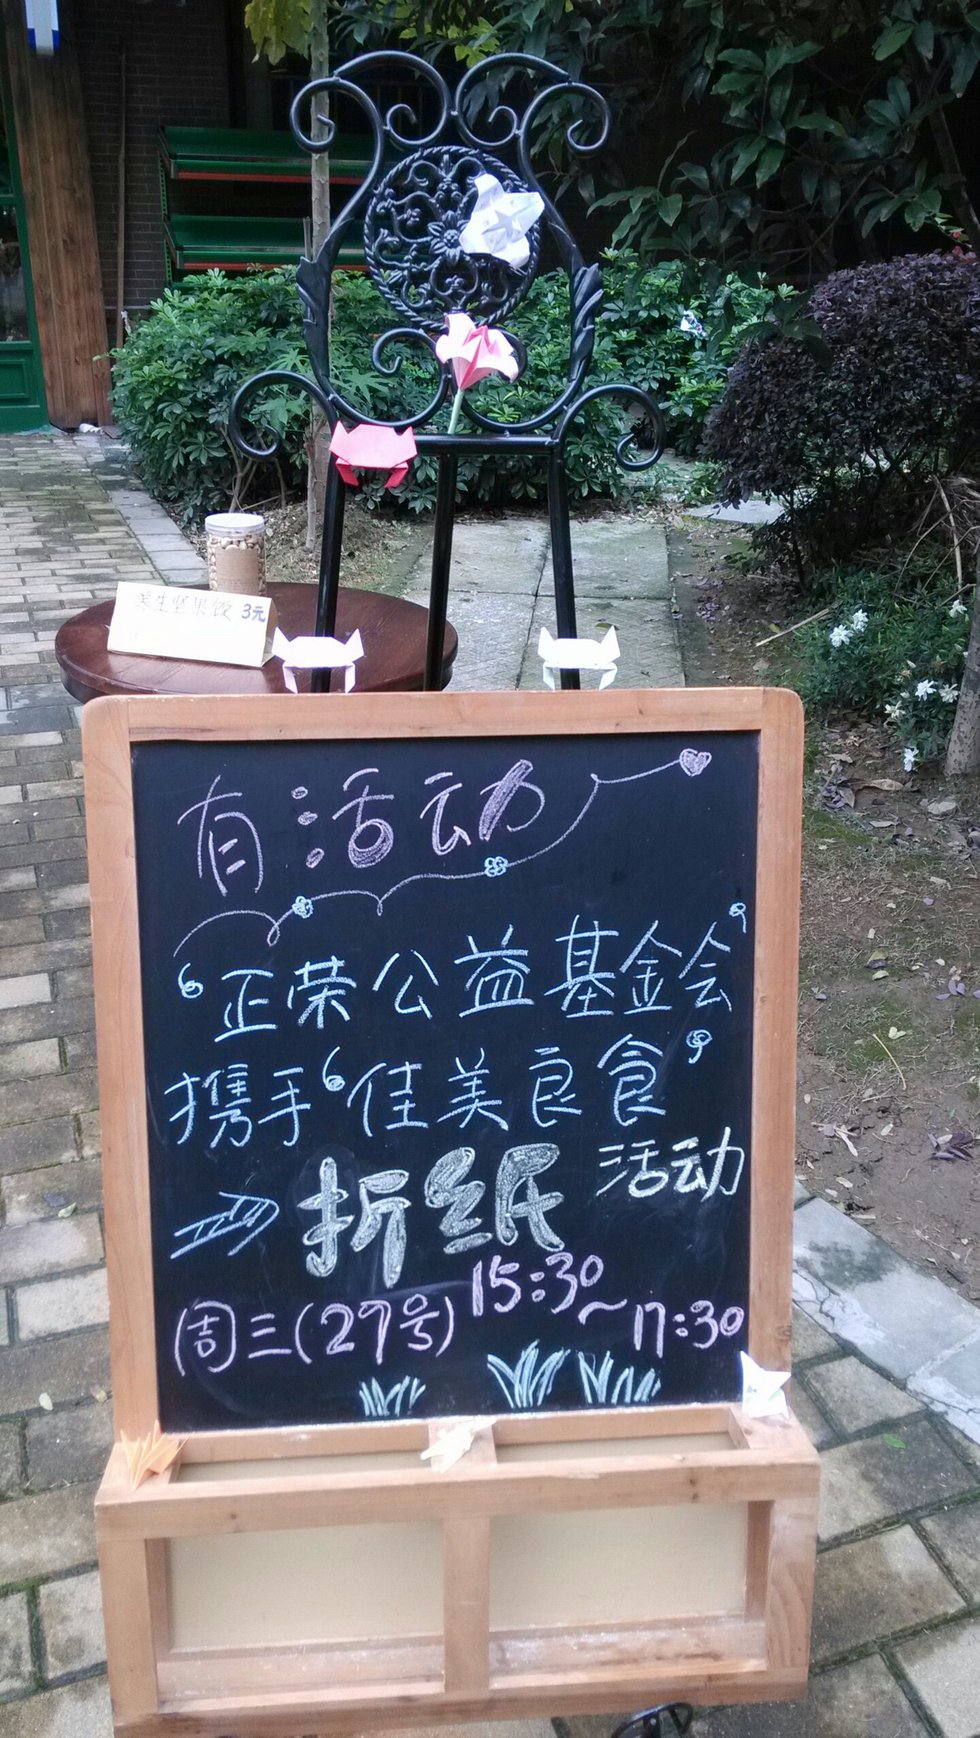 养生坚果饮 3元
有活动
“正荣公益基金会”
携手“佳美良食”
⇒ 折纸 活动
周三(27号) 15:30~17:30